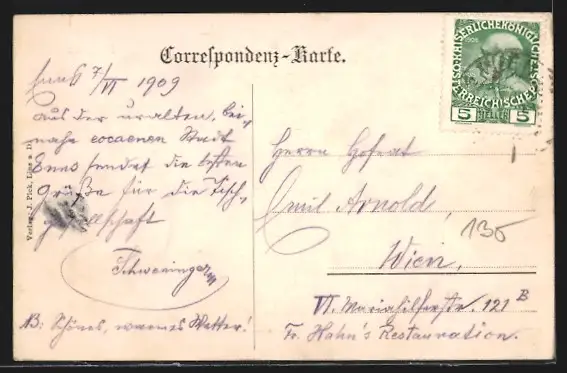 Correspondenz-Karte.
Enns 7/VI 1909
Aus der uralten, bei-
nahe eocaenen Stadt
Enns sendet die besten
Grüße für die Tisch-
gesellschaft
Schweninger
NB: Schönes, warmes Wetter!
Verlag: J. Pick, Linz a. D.
KAISERLICHE KÖNIGLICHE
ÖSTERREICHISCHE POST
1908
5 HELLER 5
Herrn Hofrat
Emil Arnold,
Wien,
135
VI. Mariahilferstr. 121 B
Fr. Hahn's Restauration.